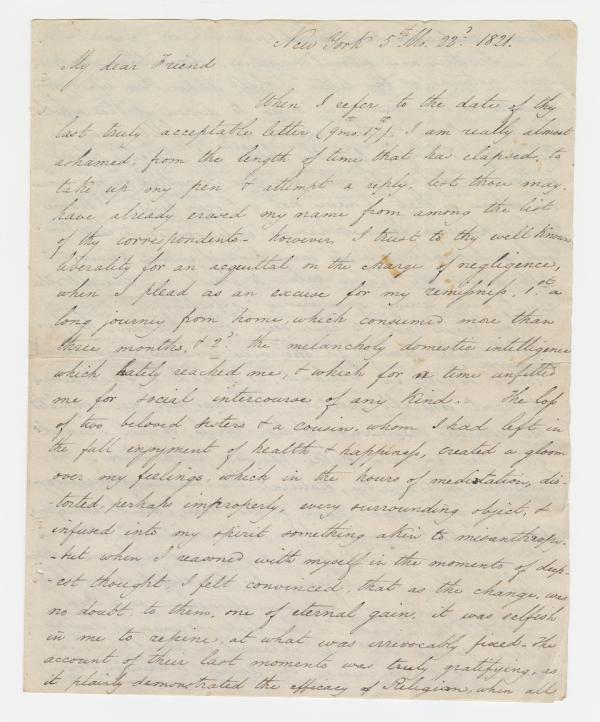 New York 5th Mo. 22d. 1821.
My dear Friend
When I refer to the date of thy
last truly acceptable letter (9mo. 17th), I am really almost
ashamed, from the length of time that has elapsed, to
take up my pen & attempt a reply, lest thou may,
have already erased my name from among the list
of thy correspondents - however, I trust to thy well known
liberality for an acquittal on the charge of negligence,
when I plead as an excuse for my remissness, 1st. a
long journey from home, which consumed more than
three months, & 2d. the melancholy domestic intelligence
which lately reached me, & which for a time unfitted
me for social intercourse of any kind. - The loss
of two beloved sisters & a cousin, whom I had left in
the full enjoyment of health & happiness, created a gloom
over my feelings, which in the hours of meditation, dis-
-torted, perhaps improperly, every surrounding object, &
infused into my spirit something akin to misanthropy.
- but, when I reasoned with myself in the moments of deep-
-est thought, I felt convinced, that as the change, was
no doubt to them, one of eternal gain, it was selfish
in me to repine, at what was irrevocably fixed - The
account of their last moments was truly gratifying, as
it plainly demonstrated the efficacy of Religion, when all